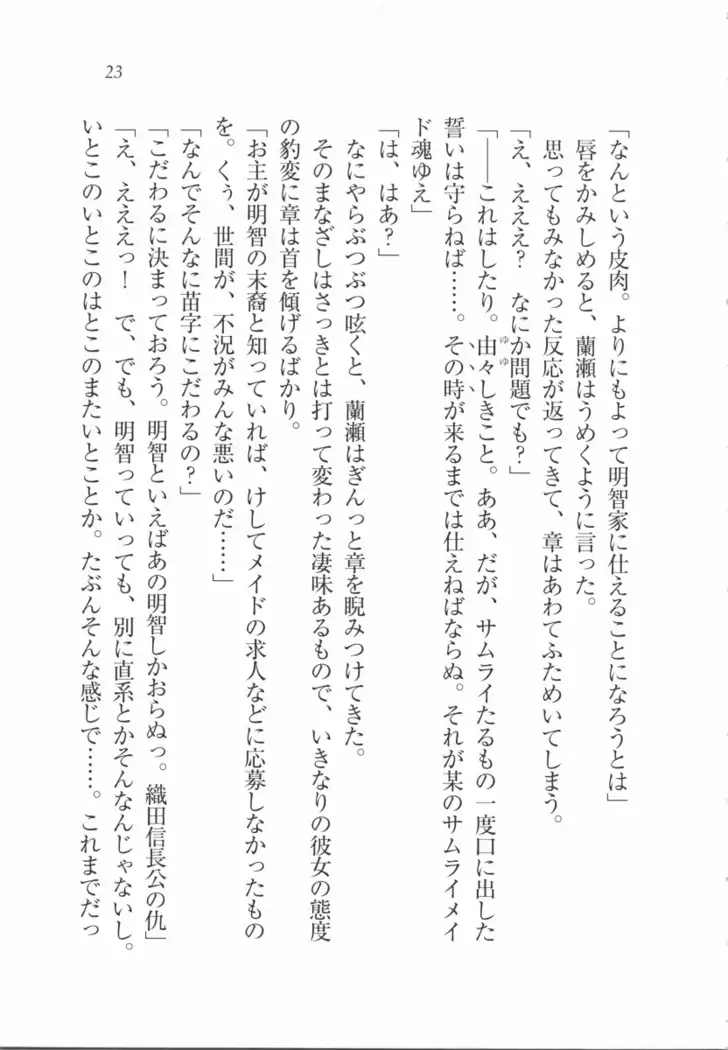 23
「なんという皮肉。よりにもよって明智家に仕えることになろうとは」
唇をかみしめると、蘭瀬はうめくように言った。
思ってもみなかった反応が返ってきて、章はあわてふためいてしまう。
「え、えええ？　なにか問題でも？」
「――これはしたり。由々しきこと。ああ、だが、サムライたるもの一度口に出した
ゆゆ
誓いは守らねば……。その時が来るまでは仕えねばならぬ。それが某のサムライメイ
ド魂ゆえ」
「は、はあ？」
なにやらぶつぶつ呟くと、蘭瀬はぎんっと章を睨みつけてきた。
そのまなざしはさっきとは打って変わった凄味あるもので、いきなりの彼女の態度
の豹変に章は首を傾げるばかり。
「お主が明智の末裔と知っていれば、けしてメイドの求人などに応募しなかったもの
を。くぅ、世間が、不況がみんな悪いのだ……」
「なんでそんなに苗字にこだわるの？」
「こだわるに決まっておろう。明智といえばあの明智しかおらぬっ。織田信長公の仇」
「え、えええっ！　で、でも、明智っていっても、別に直系とかそんなんじゃないし。
いとこのいとこのはとこのまたいとことか。たぶんそんな感じで……。これまでだっ